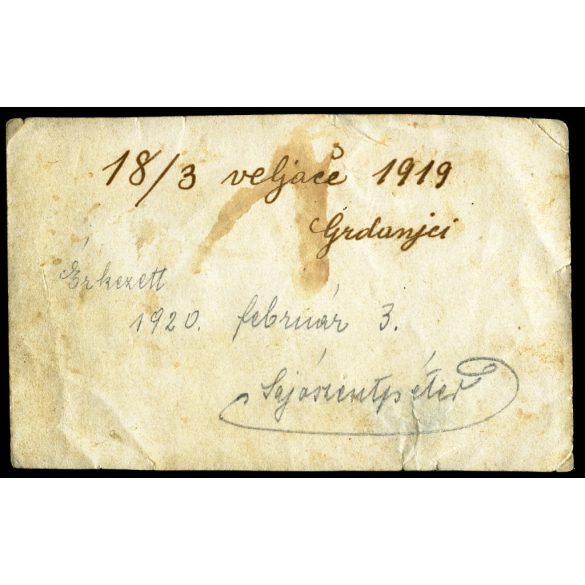 18/3 veljače 1919
Grdanjci
Érkezett
1920. február 3.
Sajószentpéter